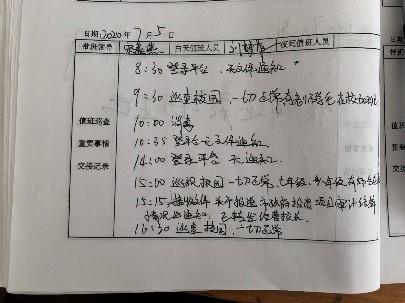 日期:2020年7月5日
带班领导 白天值班人员 夜间值班人员
8:30 登录平台、无文件通知
9:30 巡查校园,一切正常
值班巡查 10:00 消毒
重要事情 10:35 登录 无文件通知
交接记录 14:00 登录平台 无通知.
15:00 巡视校园 一切正常、七年级、
15:15 接收文件 关于报送市政府投资项目审计结算
情况的通知,已转
16:30 巡查校园,一切正常